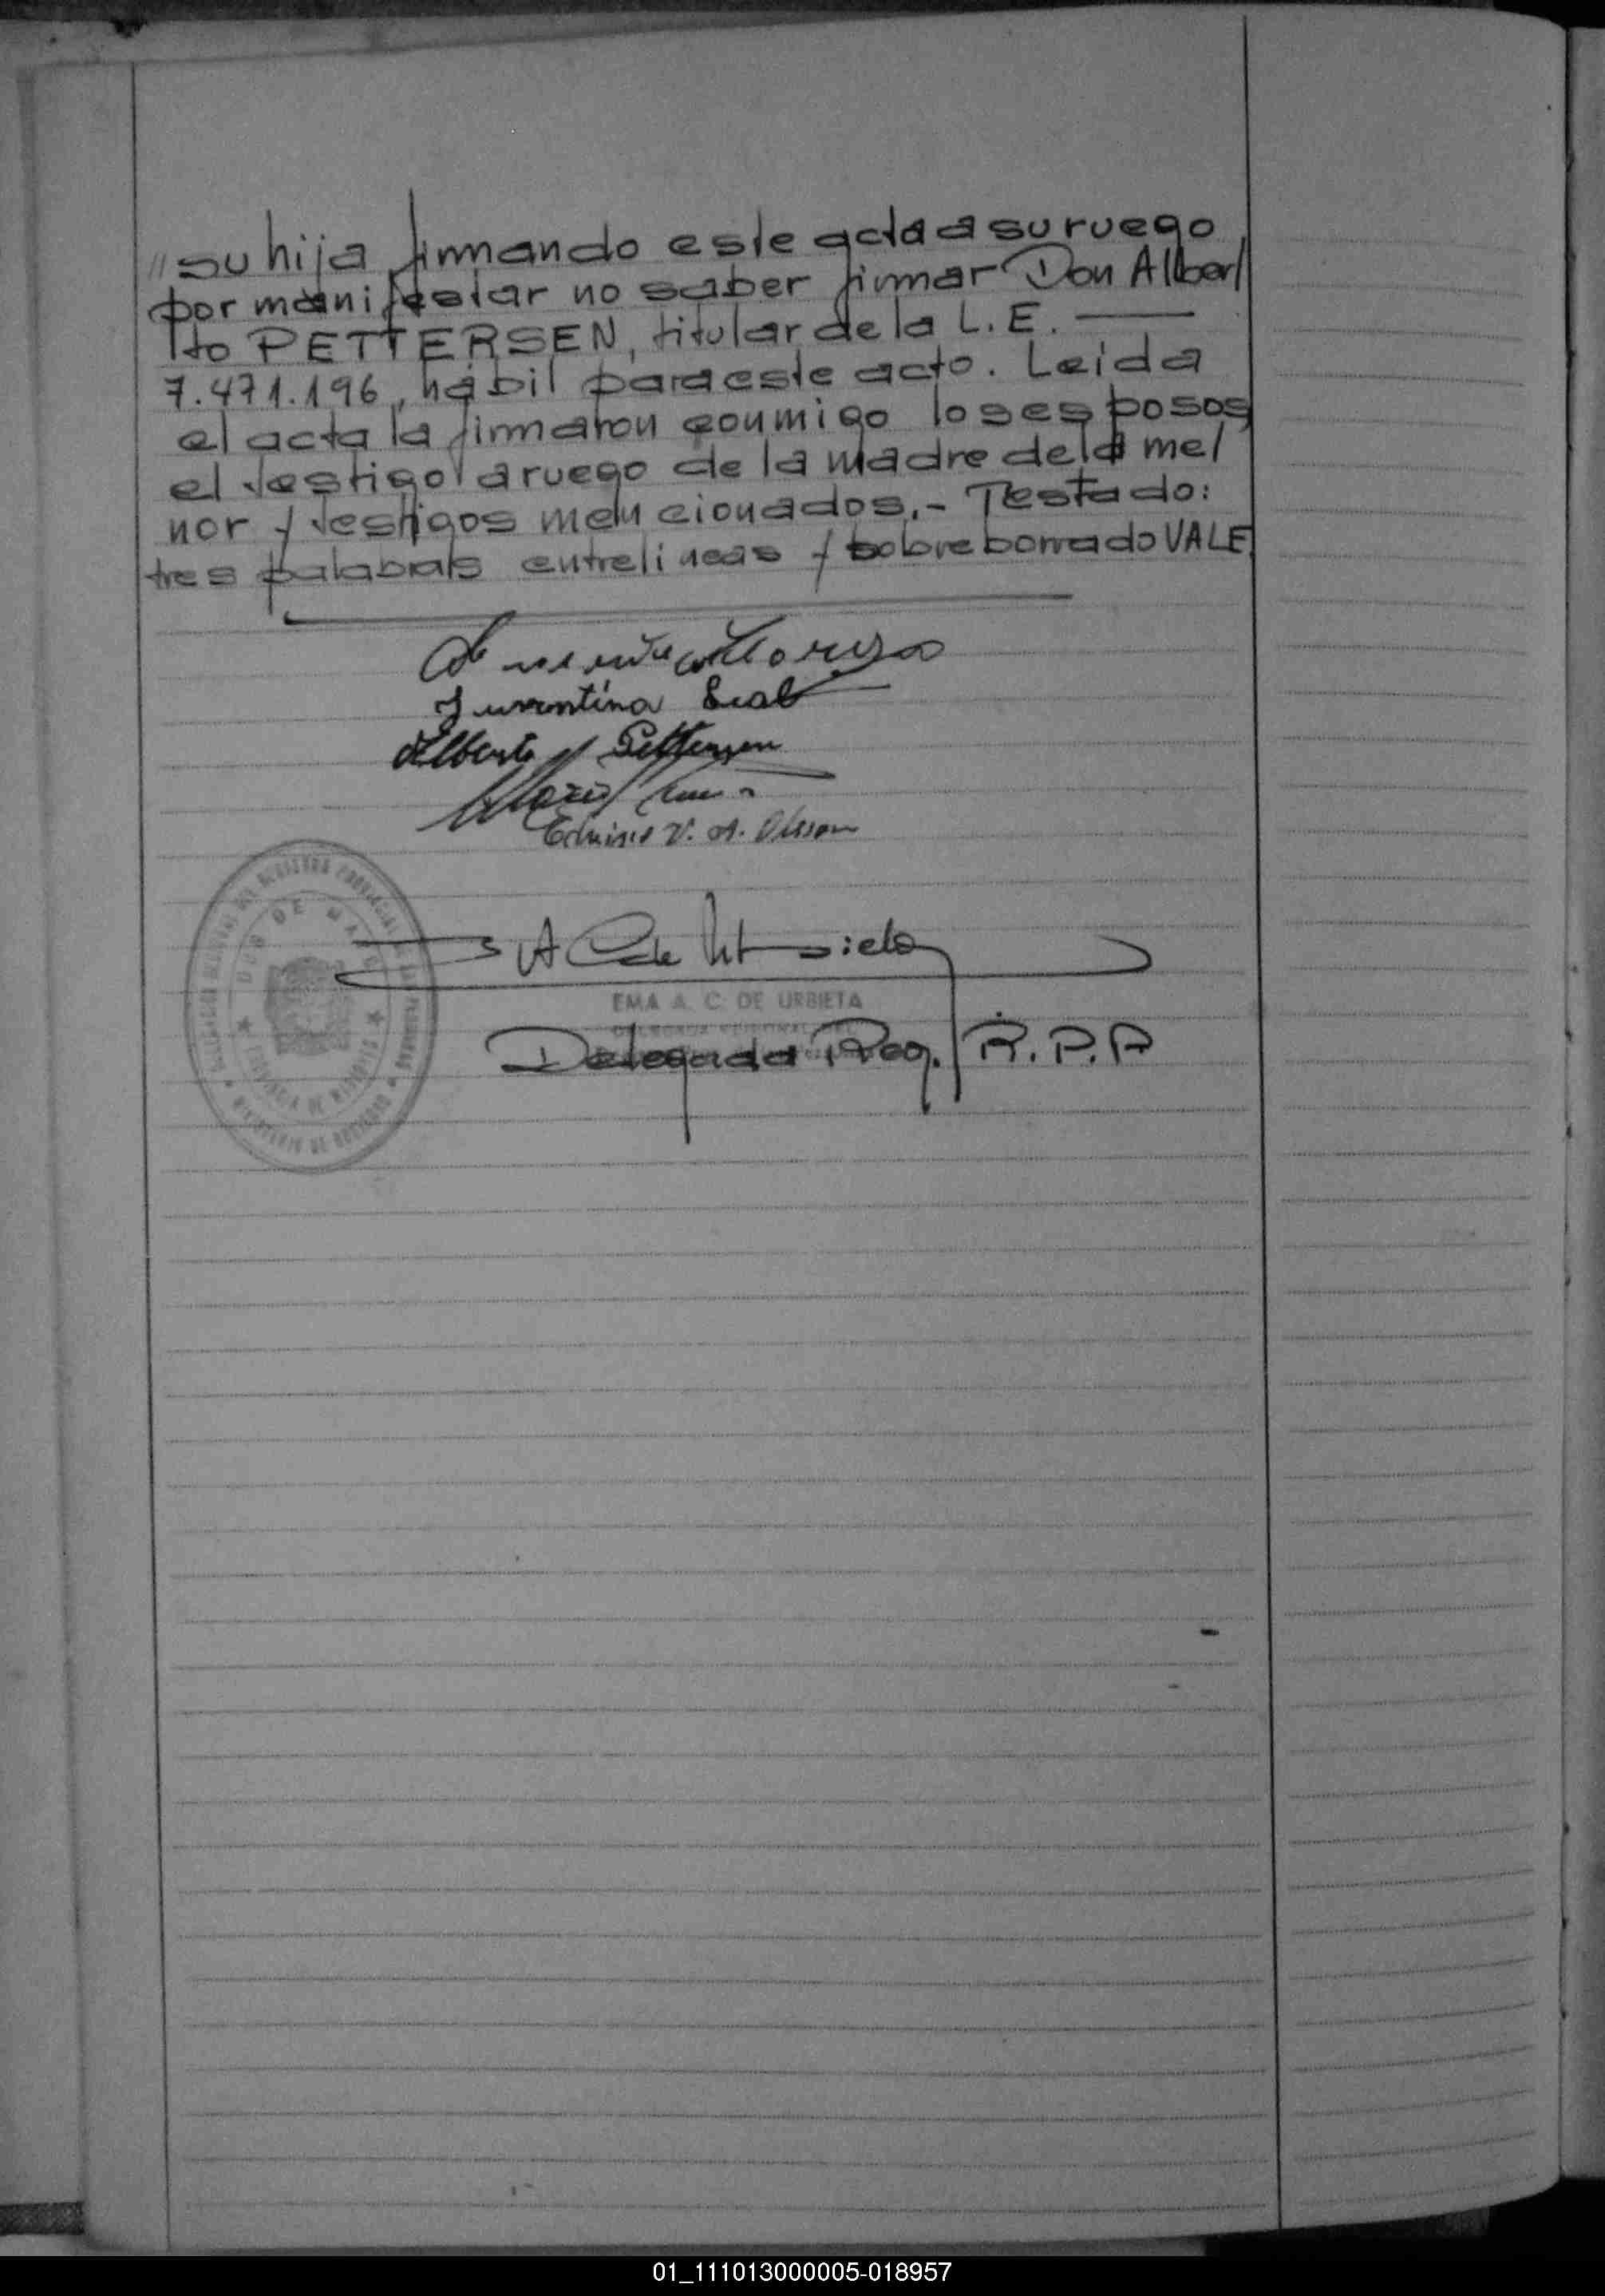 // su hija, firmando este acta a su ruego
por manifestar no saber firmar Don Alber/
/to PETTERSEN, titular de la L.E. ——
7.471.196, hábil para este acto. Leida
el acta la firmaron conmigo los esposos
el testigo a ruego de la madre de la me/
nor y testigos mencionados.- Testado:
tres palabras entrelineas y sobreborrado VALE.
Juventina Leal
Alberto Pettersen
V. A. Olsson
EMA A. C. DE URBIETA
Delegada Reg. R.P.P
01_111013000005-018957